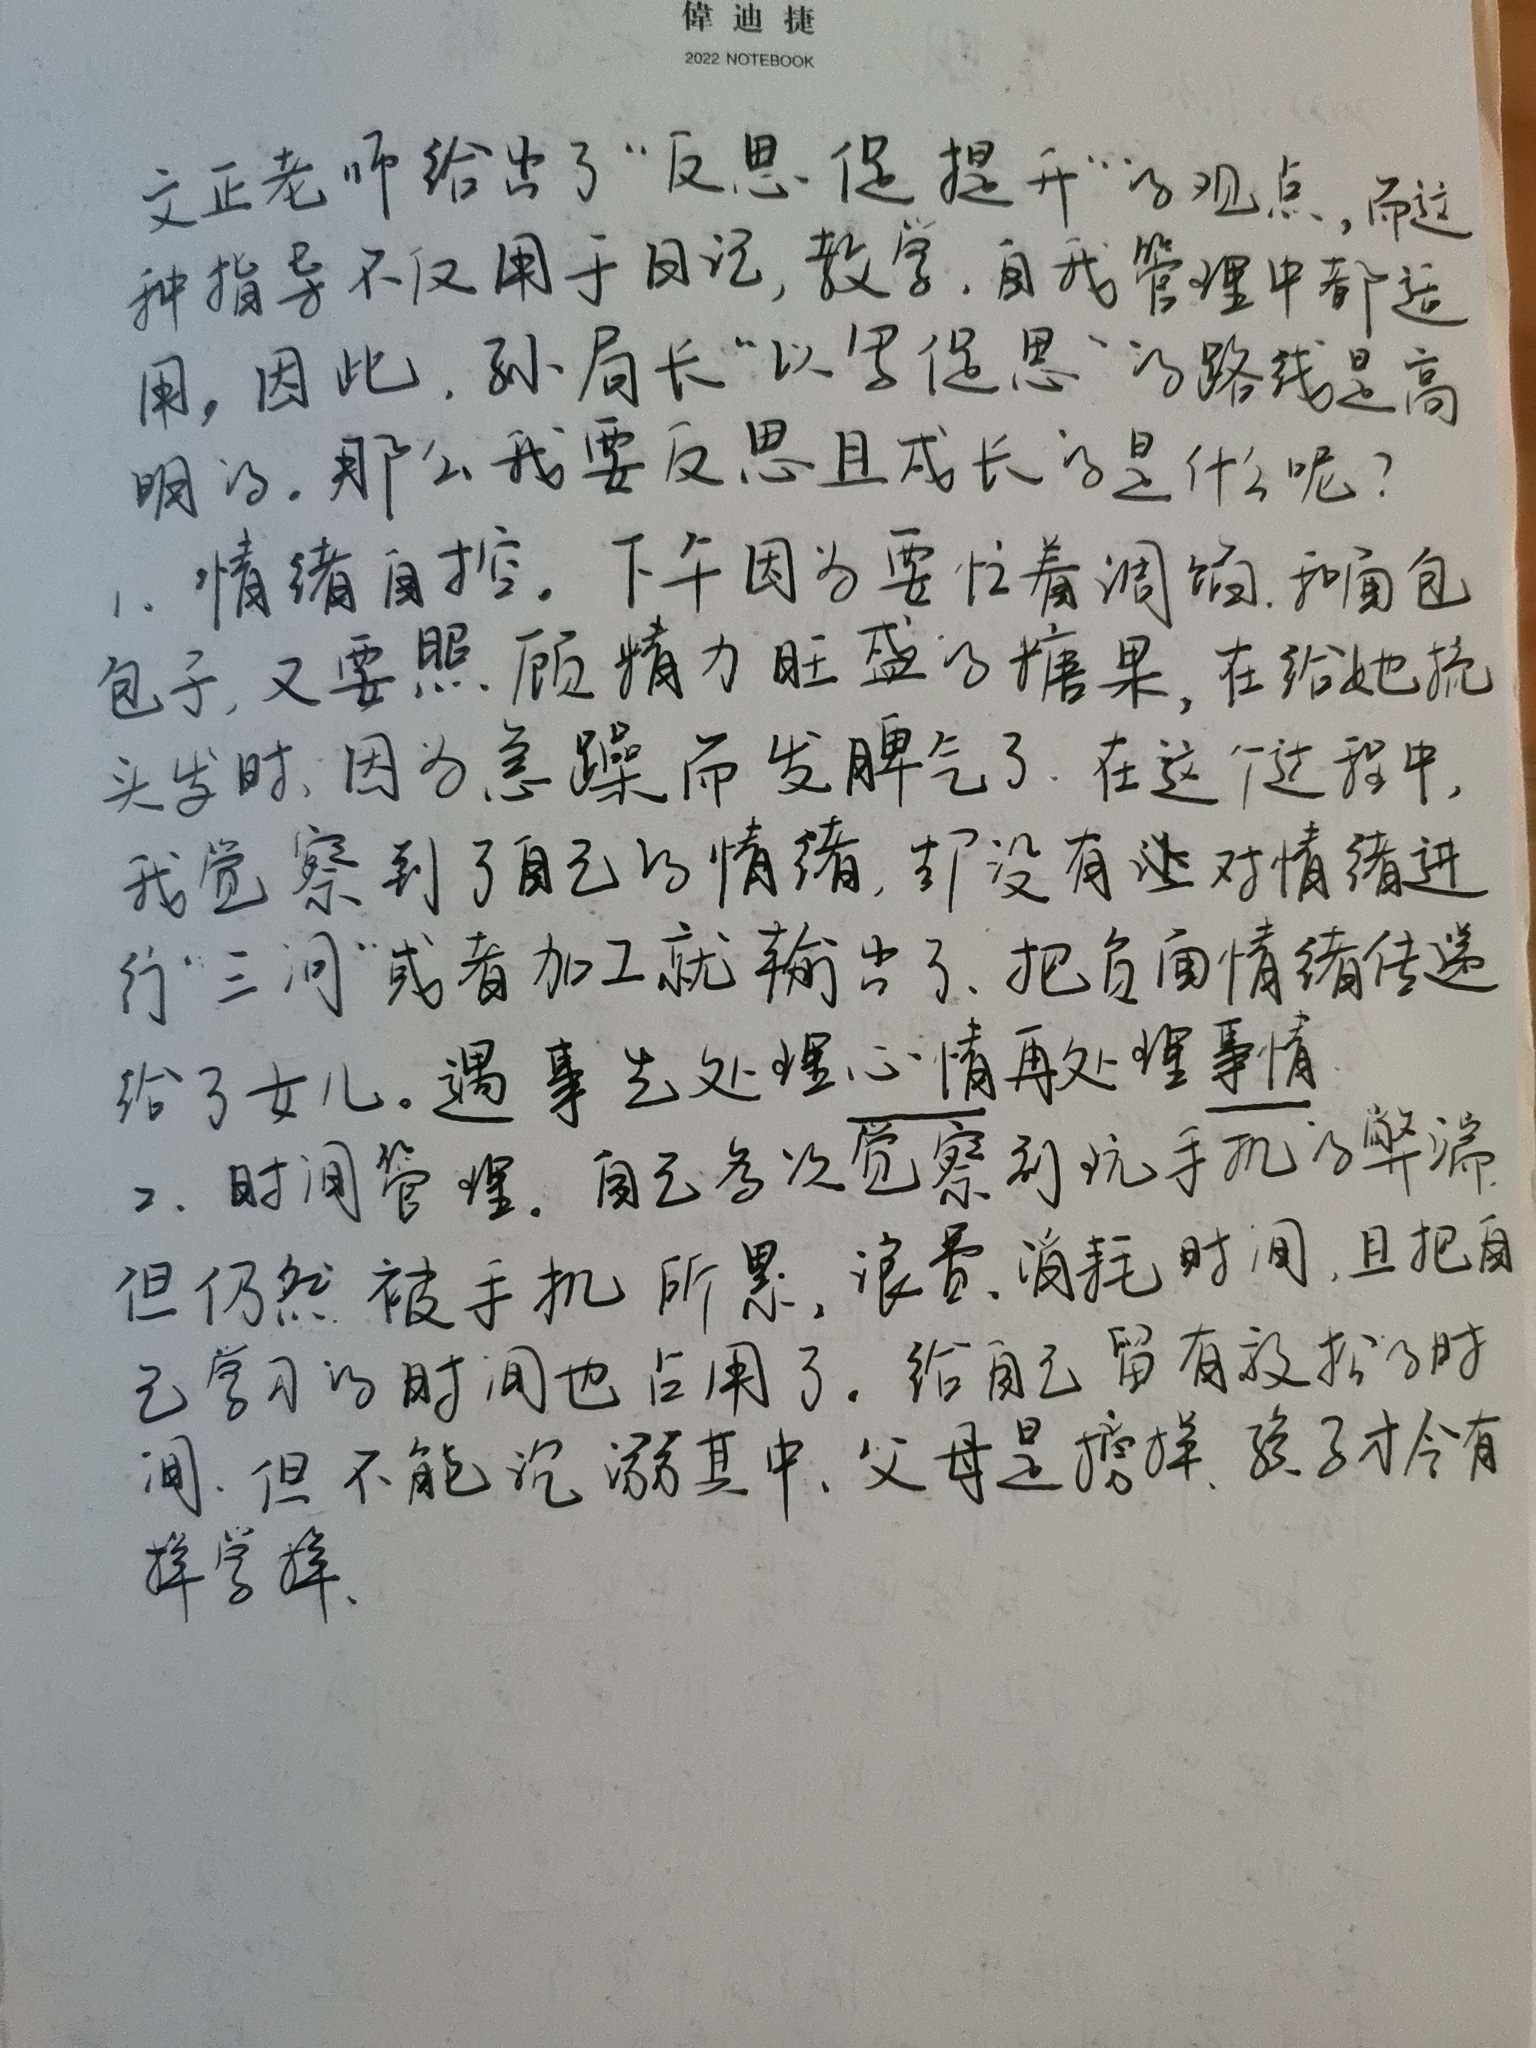 偉迪捷
2022 NOTEBOOK
文正老师给出了“反思促提升”的观点，而这
种指导不仅用于日记，教学、自我管理中都适
用。因此，孙局长“以写促思”的路线是高
明的。那么我要反思且成长的是什么呢？
1、情绪自控。下午因为要忙着调馅、和面包
包子，又要照顾精力旺盛的糖果，在给她梳
头发时、因为急躁而发脾气了、在这个过程中，
我觉察到了自己的情绪，却没有对情绪进
行“三问”或者加工就输出了、把负面情绪传递
给了女儿。遇事先处理心情再处理事情、
2、时间管理。自己多次觉察到玩手机的弊端、
但仍然被手机所累，浪费、消耗时间，且把自
己学习的时间也占用了。给自己留有放松的时
间、但不能沉溺其中、父母是榜样、孩子才会有
样学样、